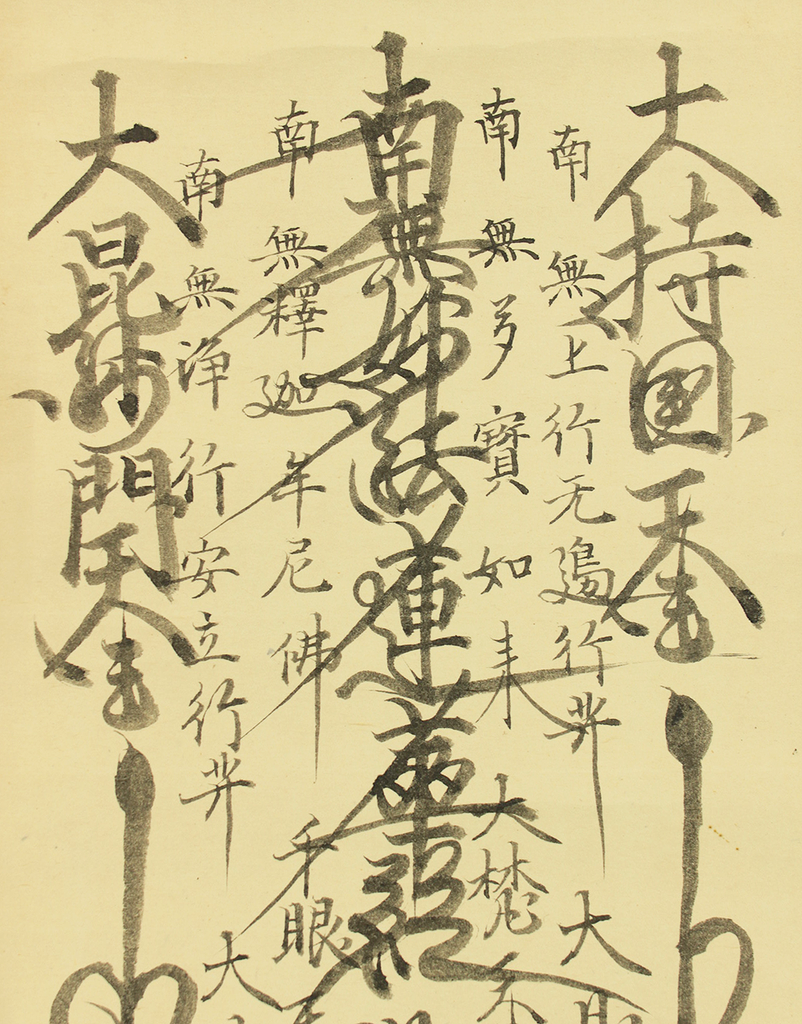 大持国天王
南無上行无邊行𦬇
大
南無多寶如来
大梵天
南無妙法蓮華経
南無釋迦牟尼佛
千眼天
南無浄行安立行𦬇
大
大毘沙門天王